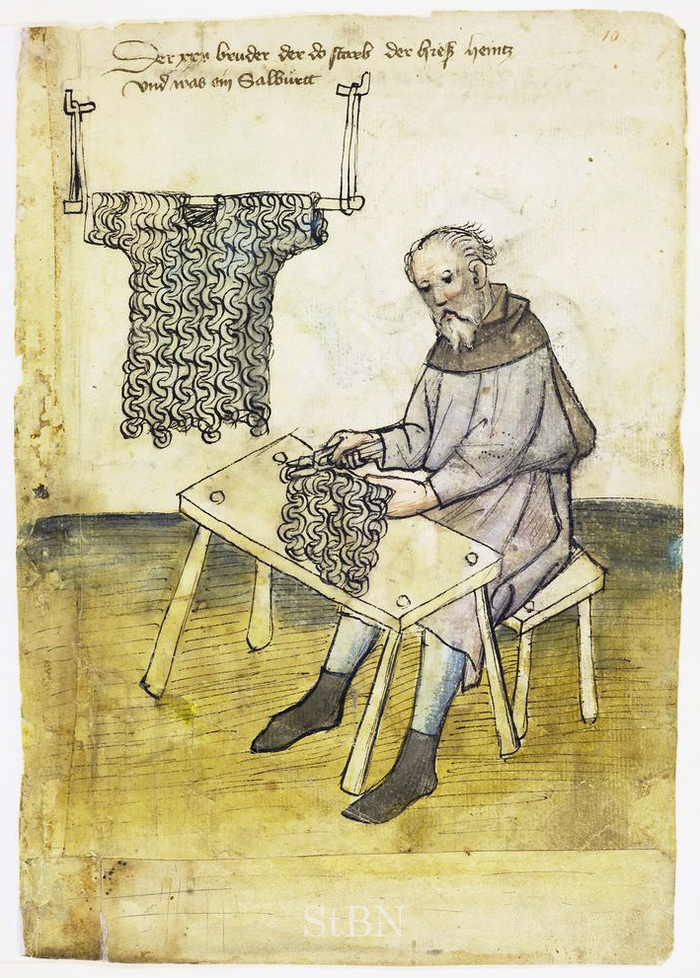 10
Der xxv bruder der do starb der hieß heintz
vnd was ein Salburtt
StBN